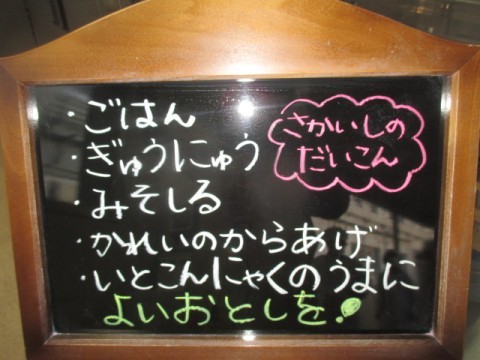 ・ごはん
・ぎゅうにゅう
・みそしる
・かれいのからあげ
・いとこんにゃくのうまに
よいおとしを!
さかいしの
だいこん